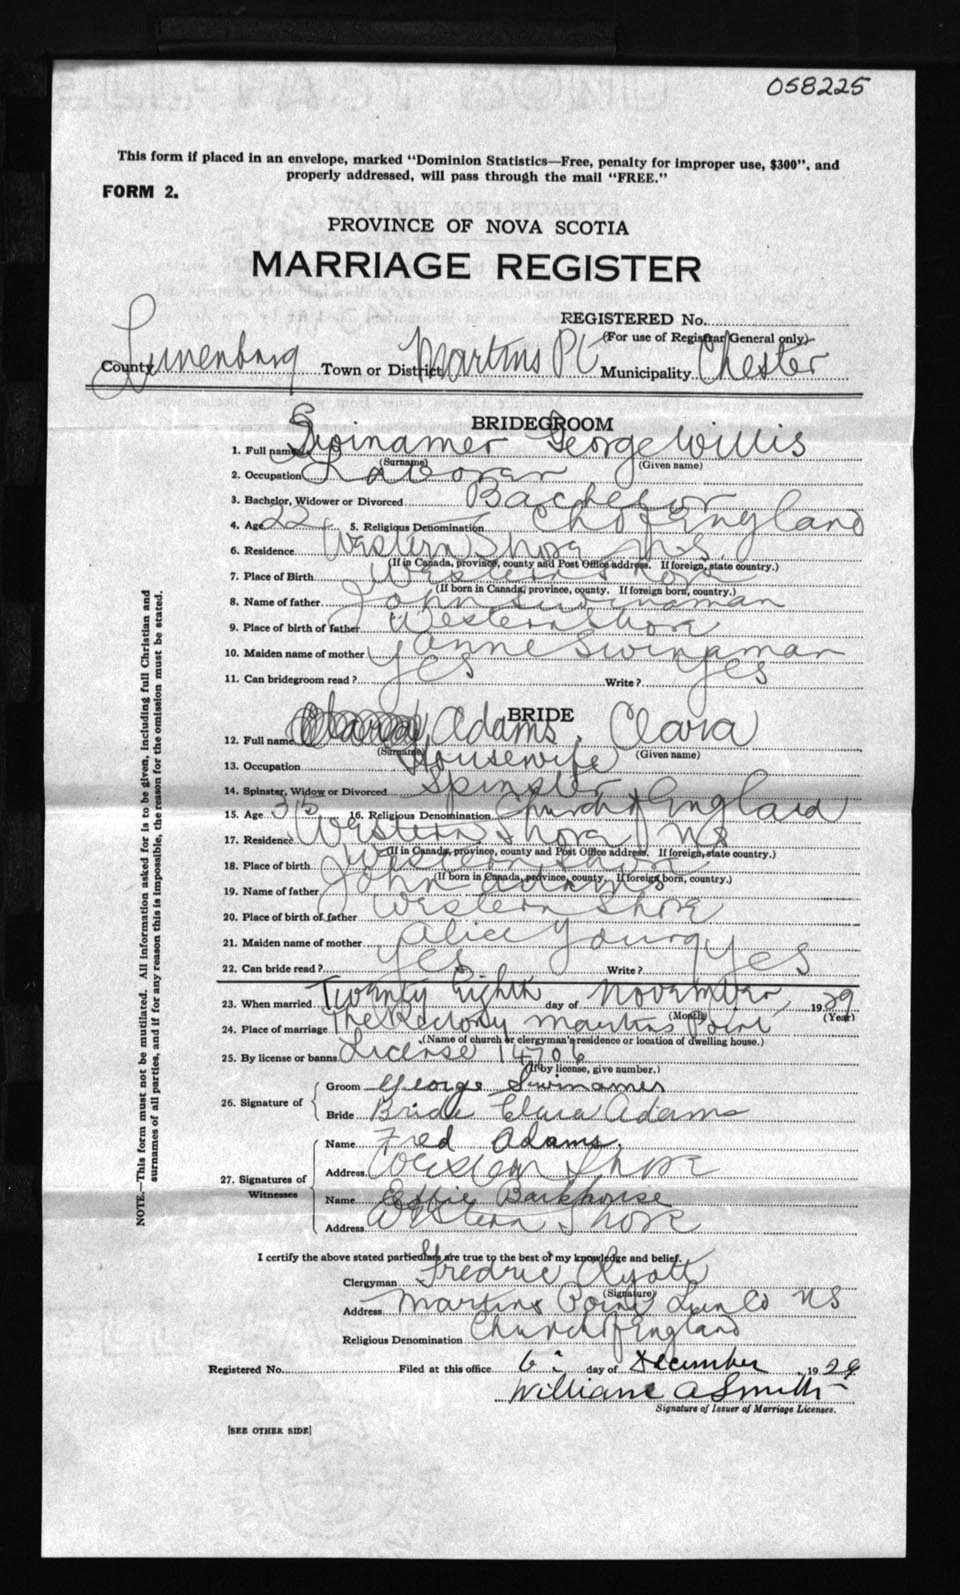 058225
This form if placed in an envelope, marked "Dominion Statistics—Free, penalty for improper use, $300", and
properly addressed, will pass through the mail "FREE."
FORM 2.
PROVINCE OF NOVA SCOTIA
MARRIAGE REGISTER
REGISTERED No.
(For use of Registrar General only)
County Lunenburg Town or District Martins Pt Municipality Chester
BRIDEGROOM
1. Full name Swinamer George Willis
(Surname) (Given name)
2. Occupation Laborer
3. Bachelor, Widower or Divorced Bachelor
4. Age 22 5. Religious Denomination Ch of England
6. Residence Western Shore N.S.
(If in Canada, province, county and Post Office address. If foreign, state country.)
7. Place of Birth Western Shore
(If born in Canada, province, county. If foreign born, country.)
8. Name of father John Swinaman
9. Place of birth of father Western Shore
10. Maiden name of mother Anne Swinaman
11. Can bridegroom read? Yes Write? Yes
BRIDE
12. Full name Adams, Clara
(Surname) (Given name)
13. Occupation Housewife
14. Spinster, Widow or Divorced Spinster
15. Age 35 16. Religious Denomination Church of England
17. Residence Western Shore NS
(If in Canada, province, county and Post Office address. If foreign, state country.)
18. Place of birth Western Shore
(If born in Canada, province, county. If foreign born, country.)
19. Name of father John Adams
20. Place of birth of father Western Shore
21. Maiden name of mother Alice Young
22. Can bride read? Yes Write? Yes
23. When married Twenty Eighth day of November, 1929
(Month) (Year)
24. Place of marriage The Rectory Martins Point
(Name of church or clergyman's residence or location of dwelling house.)
25. By license or banns License 14706
(If by license, give number.)
26. Signature of
Groom George Swinamer
Bride Bride Clara Adams
27. Signatures of Witnesses
Name Fred Adams.
Address Western Shore
Name Effie Barkhouse
Address Western Shore
I certify the above stated particulars are true to the best of my knowledge and belief.
Clergyman Fredric Ryott
(Signature)
Address Martins Point Lun Co NS
Religious Denomination Church of England
Registered No. Filed at this office 6 day of December, 1929
William A Smith
Signature of Issuer of Marriage Licenses.
[SEE OTHER SIDE]
NOTE.—This form must not be mutilated. All information asked for is to be given, including full Christian and
surnames of all parties, and if for any reason this is impossible, the reason for the omission must be stated.